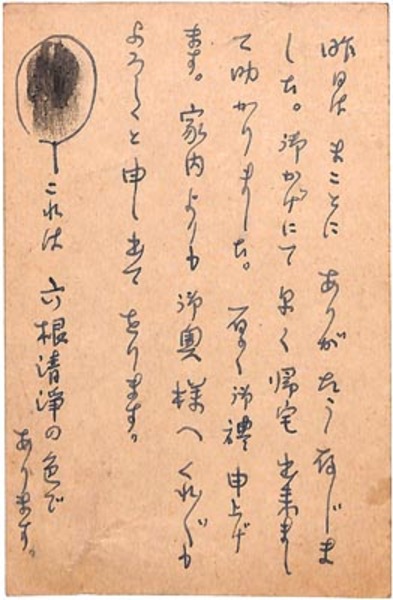 昨日はまことにありがたう存じま
した。御かげにて早く帰宅出来まし
て助かりました。厚く御禮申上げ
ます。家内よりも御奥様へくれ〲も
よろしくと申し出てをります。
これは六根清浄の色で
あります。